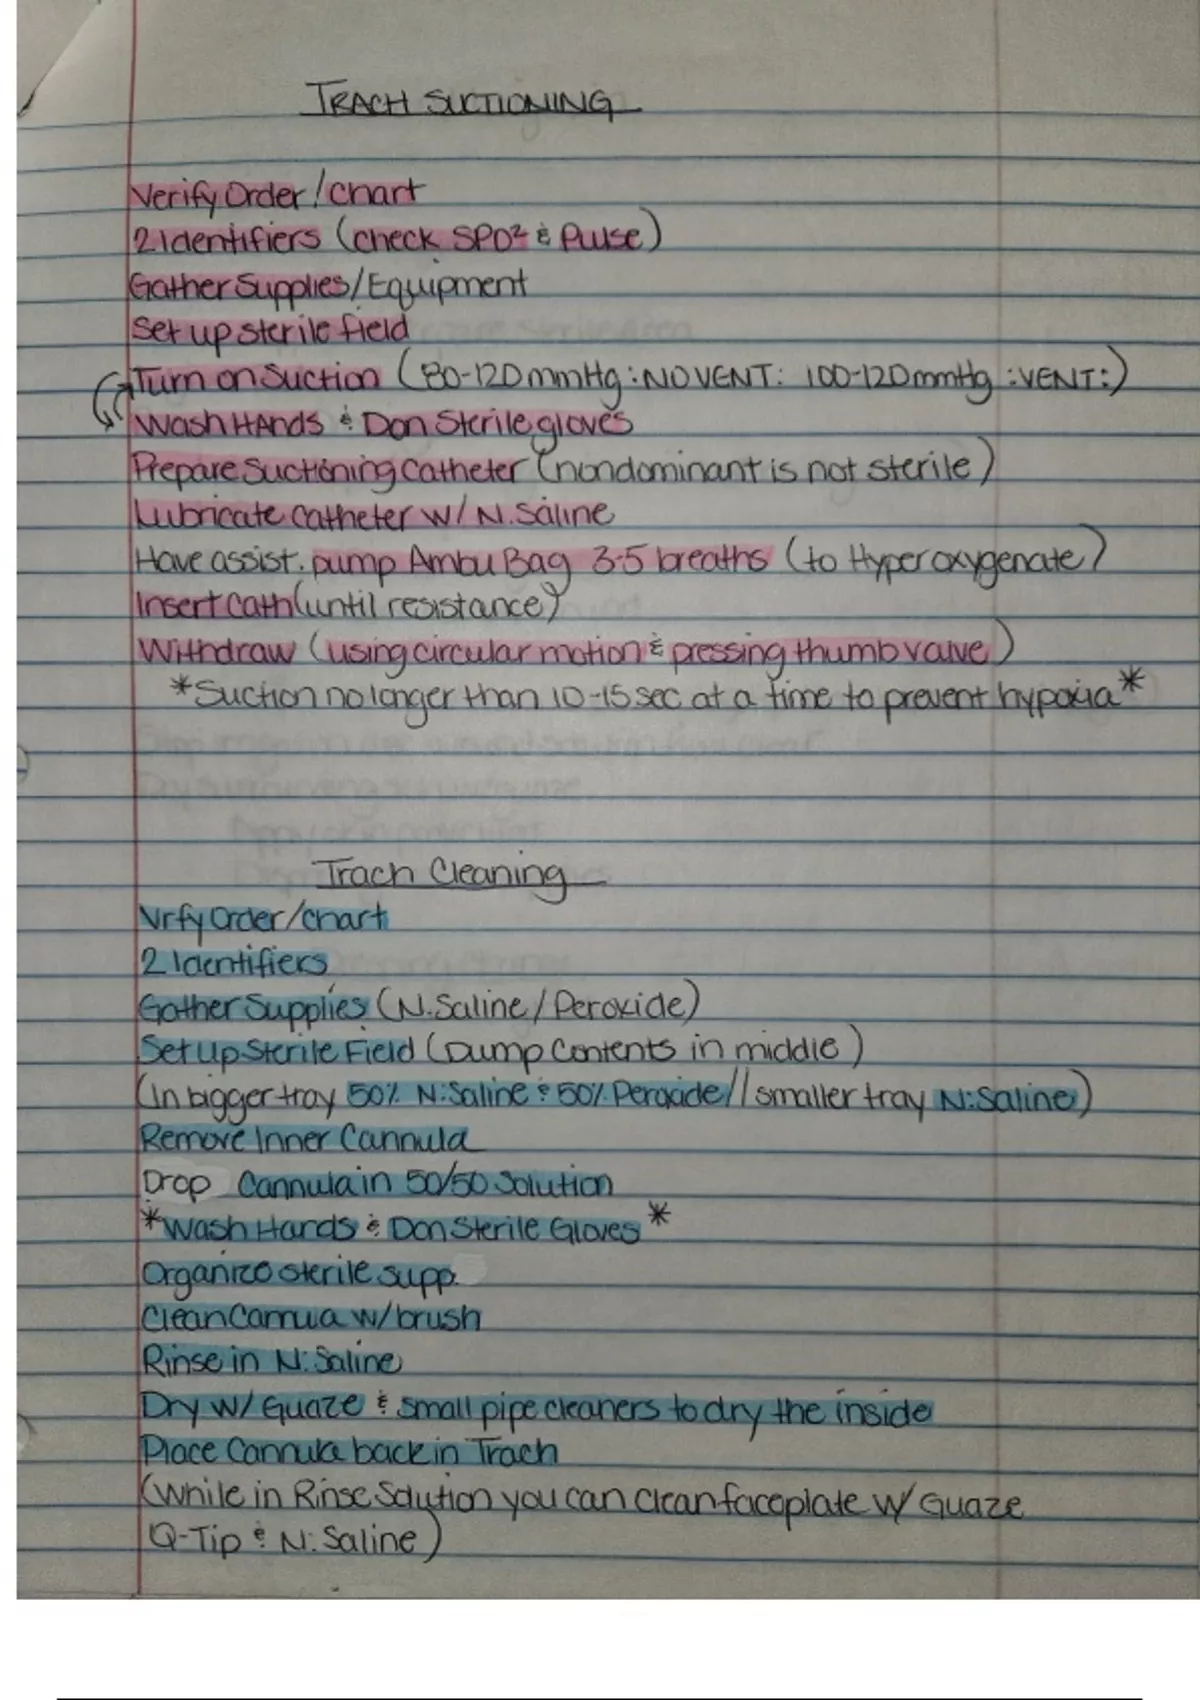 TRACH SUCTIONING
Verify Order / chart
2 Identifiers (check SPO² & Pulse)
Gather Supplies/Equipment
Set up sterile field
Turn on Suction (80-120mmHg : NO VENT: 100-120mmHg :VENT:)
Wash HAnds & Don Sterile gloves
Prepare Suctioning Catheter (nondominant is not sterile)
Lubricate catheter w/ N.Saline
Have assist. pump Ambu Bag 3-5 breaths (to Hyperoxygenate)
Insert Cath (until resistance)
Withdraw (using circular motion & pressing thumb valve)
*Suction no longer than 10-15 sec at a time to prevent hypoxia*
Trach Cleaning
Vrfy Order/chart
2 Identifiers
Gather Supplies (N.Saline / Peroxide)
Set Up Sterile Field (Dump Contents in middle)
(In bigger tray 50% N:Saline & 50% Peroxide// smaller tray N:Saline)
Remove Inner Cannula
Drop Cannula in 50/50 Solution
*Wash Hands & Don Sterile Gloves*
Organize sterile supp.
Clean Cannua w/brush
Rinse in N:Saline
Dry w/ Guaze & small pipe cleaners to dry the inside
Place Cannula back in Trach
(While in Rinse Solution you can clean faceplate w/ Guaze
Q-Tip & N:Saline)